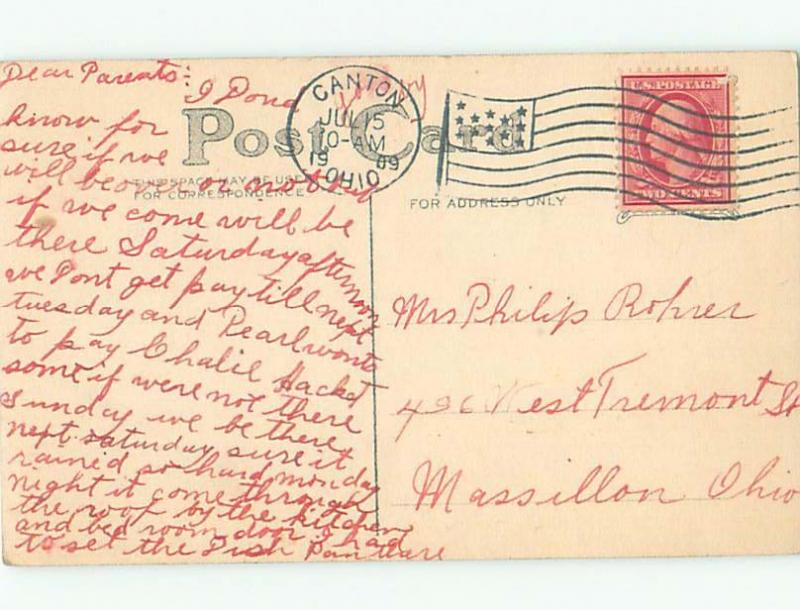 Dear Parents:
I Dond
know for
sure if we
will be over or not and
if we come will be
there Saturday afternoon
we Dont get pay till next
tuesday and Pearl wonts
to pay Chalie Hacks
some if were not there
Sunday we be there
next saturday sure it
rained so hard monday
night it come through
the roof by the kitchen
and bed room door I had
to set the Dish Pan thare
Post Card
THIS SPACE MAY BE USED
FOR CORRESPONDENCE
CANTON
JUL 15
10-AM
1909
OHIO
FOR ADDRESS ONLY
U.S. POSTAGE
TWO CENTS
Mrs Philip Rohrer
496 West Tremont St
Massillon Ohio